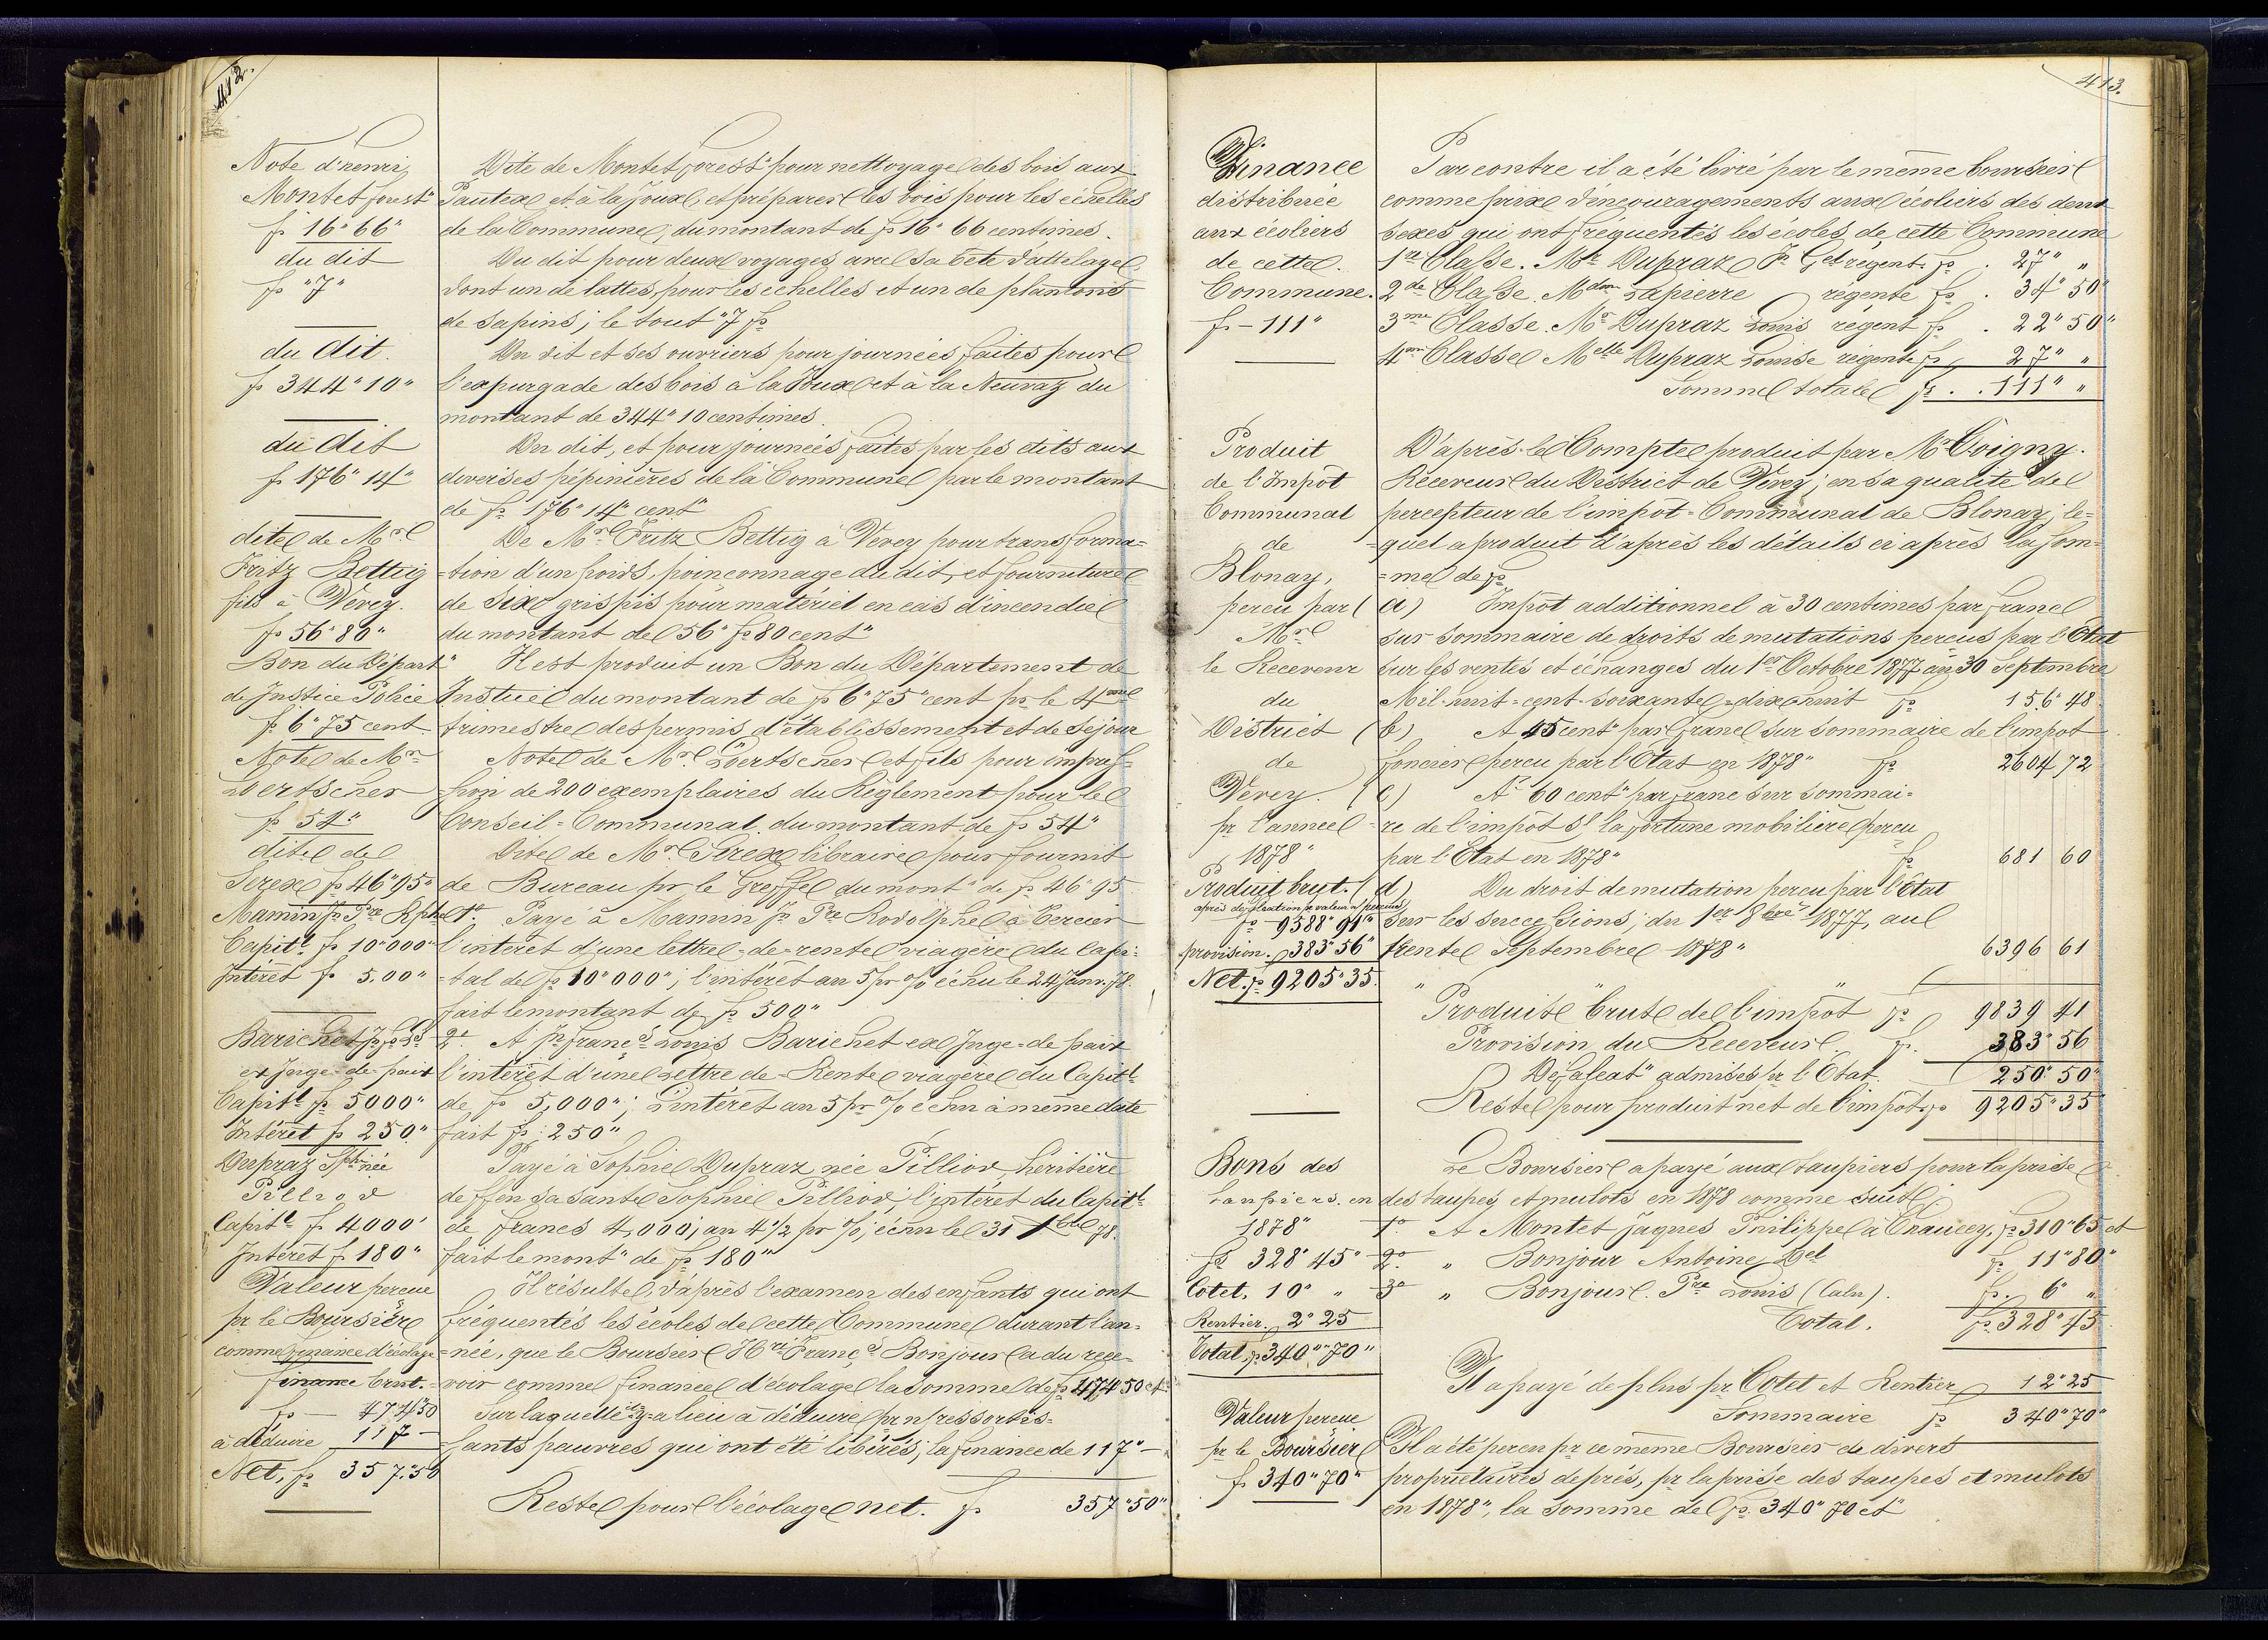 412.
Note d'henri
Montet forest
fr 16" 66"
du dit
fr "7"
du dit.
fr 344" 10"
du dit
fr 176" 14"
dite de Mr
Fritz Bettig
fils à Vevey.
fr 56" 80"
Bon du Départt
de Justice Police
fr 6" 75 cent
Note de Mr
Loertscher
fr 54"
dite de
Serex fr 46" 95"
Mamin Jn Pre Rphe
Capitl fr 10"000"
Intéret fr 5,00"
Barichet Jn Fs Ls
ex Juge = de = paix
Capitl fr 5000"
Intéret fr 250"
Dupraz Sphie née
Pilliod
Capitl fr 4000"
Intéret fr 180"
Valeur percue
pr le Boursière
comme finance d'écolage
finance brut.
fr — 474 50
à déduire 117 –
Net, fr 357"50
Dite de Montet forest pour nettoyage des bois aux
Pautex et à la Joux, et préparer les bois pour les échelles
de la Commune, du montant de fr 16" 66 centimes.
Du dit pour deux voyages avec sa bete d'attelage,
dont un de lattes, pour les échelles et un de plantons
de sapins; le tout "7 fr
Du dit et ses ouvriers pour journées faites pour
l'expurgade des bois à la Joux et à la Neuvaz du
montant de 344" 10 centimes.
Du dit, et pour journées faites par les dits aux
diverses pépinières de la Commune par le montant
de fr 176" 14" cent
De Mr Fritz Bettig à Vevey pour transforma=
=tion d'un poids, poinconnage du dit, et fourniture
de Six grispis pour matériel en cas d'incendie
du montant de 56" fr 80 cent"
Il est produit un Bon du Département de
Justice du montant de fr 6" 75" cent pr le 4me
trimestre des permis d'établissement et de Séjour
Note de Mr Loertscher et fils pour impres=
=sion de 200 exemplaires du Règlement pour le
Conseil = Communal du montant de fr 54"
Dite de Mr Serex libraire pour fournit
de Bureau pr le Greffe du mont" de fr 46" 95
1o. Payé à Mamin Jn Pre Rodolphe à Tercier
l'intéret d'une lettre = de = rente viagère du Capi=
=tal de fr 10"000"; l'intéret au 5 pr % échu le 24 Janv. 78.
fait le montant de fr 500"
2o. A Jn Francs Louis Barichet ex Juge = de paix
l'intéret d'une Lettre de = Rente viagère du Capitl
de fr 5,000"; L'intéret au 5 pr % échu à même date
fait fr 250"
Payé à Sophie Dupraz née Pilliod, héritière
de ffeu sa sante Sophie Pilliod; l'intéret du Capitl
de francs 4,000; au 4 1/2 pr %; échu le 31 Xbre 78.
fait le mont" de fr 180"
Il résulte, d'après l'examen des enfants qui ont
fréquentés les écoles de cette Commune durant l'an=
=née, que le Boursier Hri Francs Bonjour a du rece=
voir comme finance d'écolage la somme de fr 474 50 ct
Sur laquelle il y a lieu à déduire pr nr ressortis=
sants pauvres qui ont été libérés; la finance de 117" –
Reste pour l'écolage net. fr 357"50"
413.
Finance
distribuée
aux écoliers
de cette.
Commune.
fr – 111"
Produit
de l'Impôt
Communal
de
Blonay,
percu par
Mr
le Receveur
du
District
de
Vevey.
pr l'année
1878"
Produit brut.
fr 9588" 91"
provision. 383" 56"
Net. fr 9205" 35.
Bons des
taupiers. en
1878"
fr 328" 45"
Cotet, 10" "
Rentier. 2" 25
Total, fr 340" 70"
Valeur percue
pr le Boursier
fr 340" 70"
Par contre il a été livré par le même boursier
comme prix d'encouragements aux écoliers des deux
sexes qui ont fréquentés les écoles de cette Commune
1re Classe. Mr Dupraz Jn Gel régent. fr . 27" "
2de Classe. Mdm Lapierre régente fr . 34" 50"
3me Classe. Mr Dupraz Louis régent fr . 22" 50"
4me Classe Melle Dupraz Louise régente fr 27" "
Somme totale fr . . 111" "
D'après le Compte produit par Mr Coigny.
Receveur du District de Vevey; en sa qualité de
percepteur de l'impôt = Communal de Blonay; le=
=quel a produit d'après les détails ci après la som=
=me de fr
(a) Impôt additionnel à 30 centimes par franc
sur sommaire de droits de mutations percus par l'Etat
sur les ventes et échanges du 1er Octobre 1877 au 30 Septembre
Mil-huit = cent-soixante = dix = huit fr 156" 48.
(b) A 45 cent" par franc sur sommaire de l'impôt
foncier percu par l'Etat en 1878" fr 2604 72
(c) A 60 cent" par franc sur sommai=
re de l'impôt sr la fortune mobilière percu
par l'Etat en 1878" fr 681 60
(d) Du droit de mutation percu par l'Etat
sur les successions; du 1er 8bre 1877, au
trente Septembre 1878" 6396 61
Produit brut de l'impôt fr 9839 41
Provision du Receveur fr. 383" 56
Défalcat" admises pr l'Etat 250" 50"
Reste pour produit net de l'impôt fr 9205" 35
Le Boursier a payé aux taupiers pour la prise
des taupes et mulots en 1878 comme suit
1o. A Montet Jaques Philippe à Chaucey, fr 310" 65 ct
2o. " Bonjour Antoine Del fr 11" 80"
3o " Bonjour. Pre Louis (Caln). fr. 6" "
Total. fr 328" 45
Il a payé de plus pr Cotet et Rentier 12" 25
Sommaire fr 340" 70"
Il a été percu pr ce même Boursier de divers
propriétaires de prés, pr la prise des taupes et mulots
en 1878", la somme de fr. 340" 70 ct